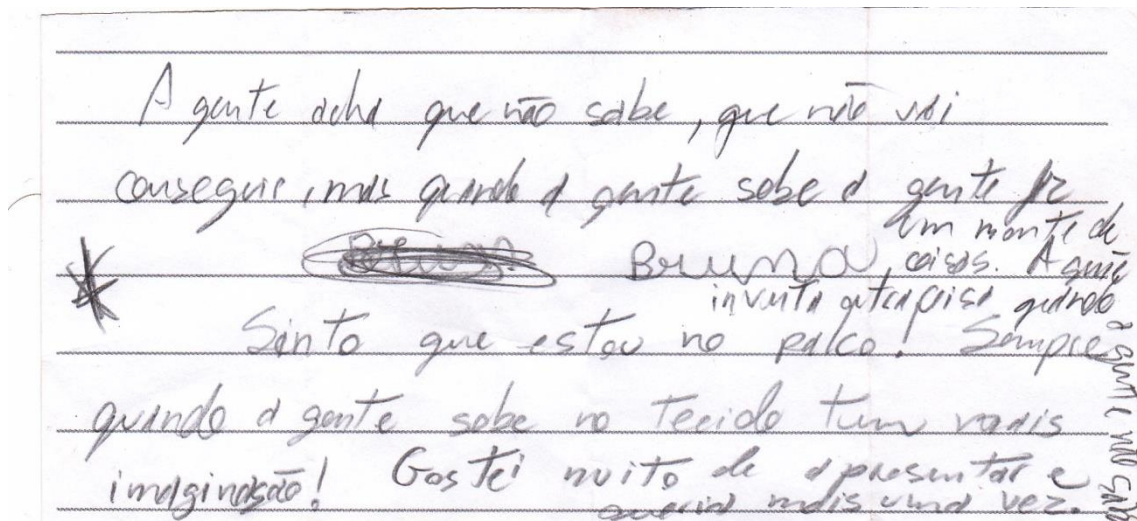 A gente acha que não sabe, que não vai
conseguir, mas quando a gente sobe a gente faz
um monte de
coisas. A gente
Bruna
inventa outra coisa quando
a gente não sabe
Sinto que estou no palco! Sempre
quando a gente sobe no tecido tem mais
imaginasão! Gostei muito de apresentar e
queria mais uma vez.